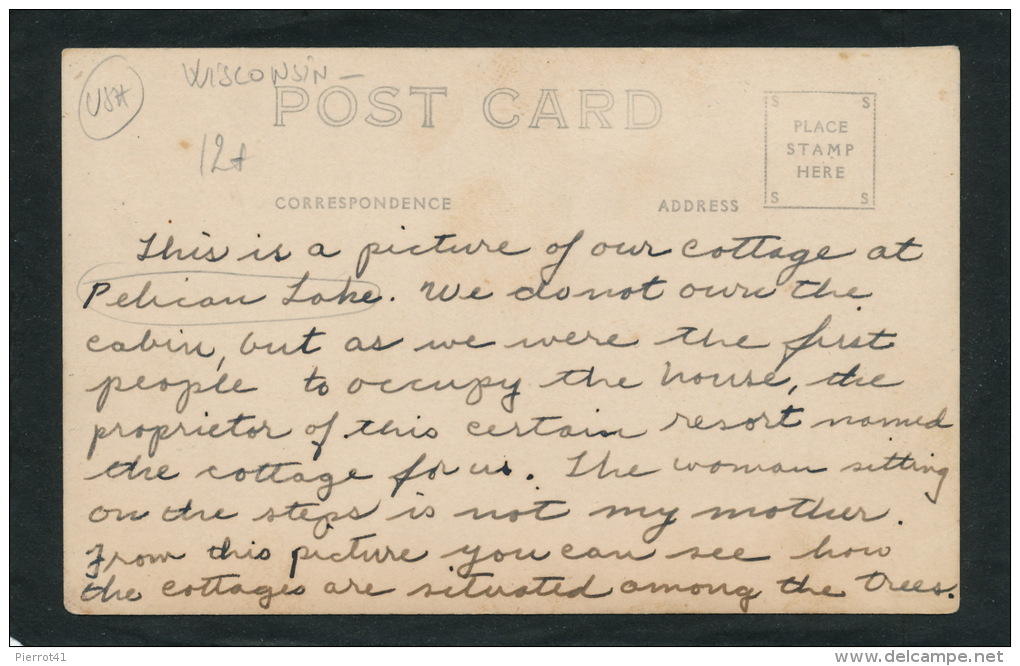 USA
WISCONSIN -
POST CARD
PLACE
STAMP
HERE
S S
S S
CORRESPONDENCE ADDRESS
This is a picture of our cottage at
Pelican Lake. We do not own the
cabin, but as we were the first
people to occupy the house, the
proprietor of this certain resort named
the cottage for us. The woman sitting
on the steps is not my mother.
From this picture you can see how
the cottages are situated among the trees.
Pierrot41
www.delcampe.net